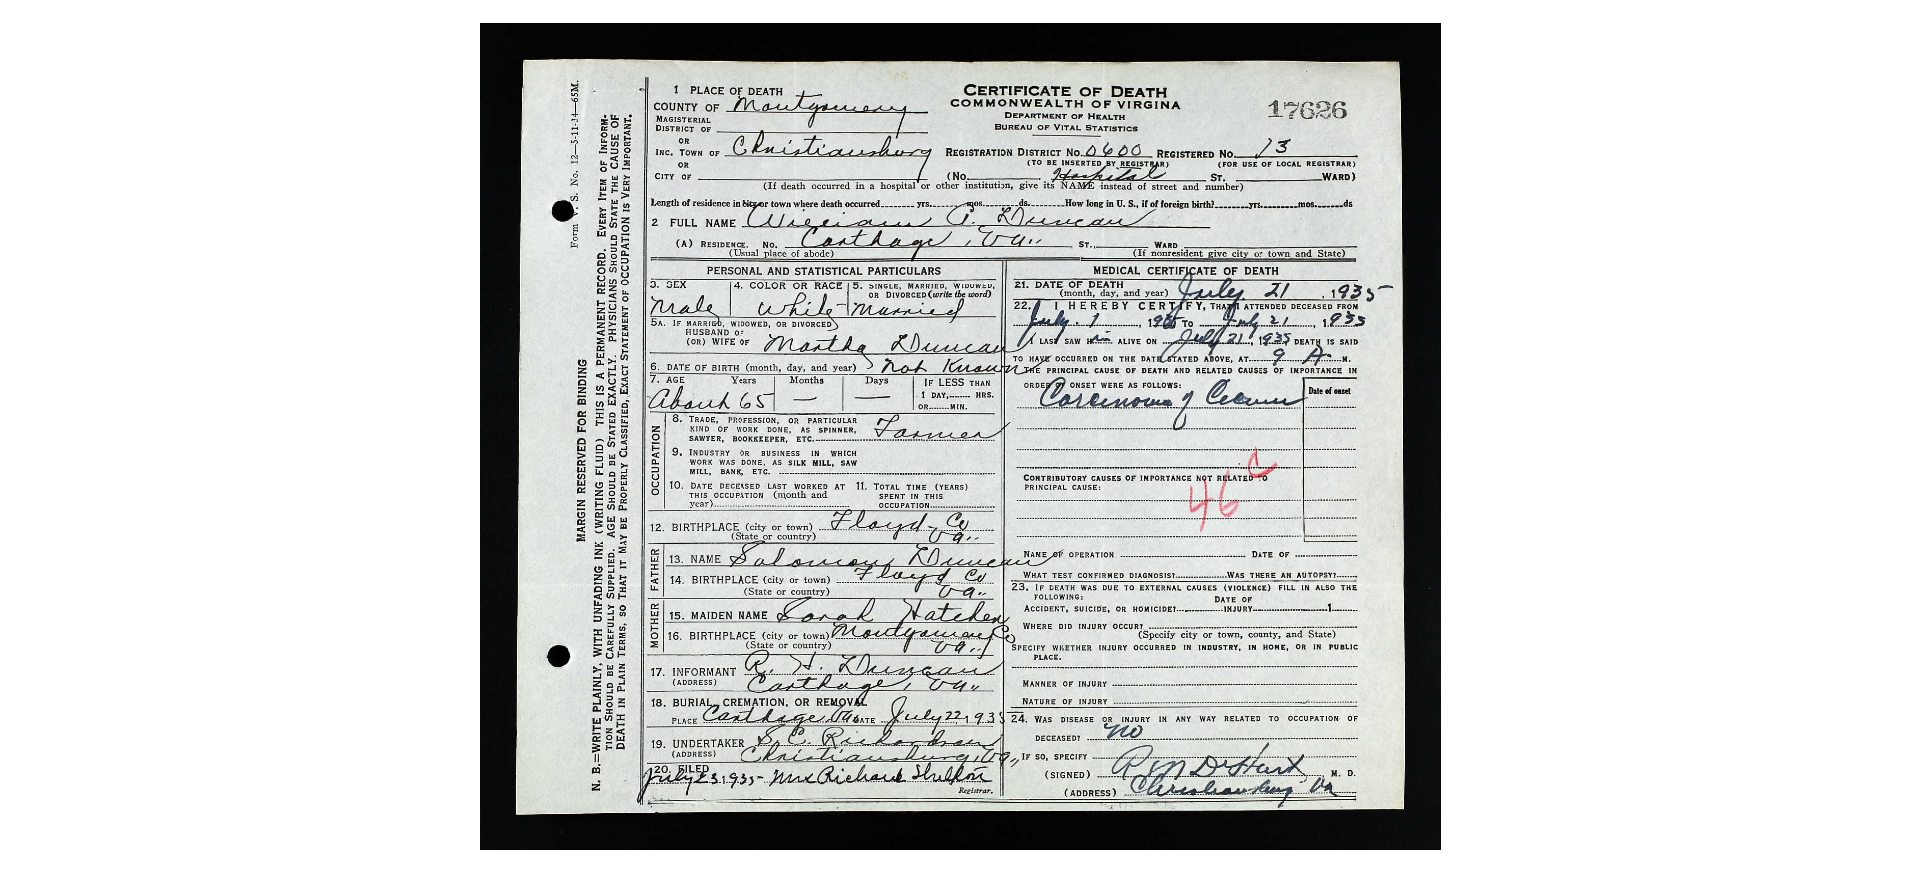 MARGIN RESERVED FOR BINDING
Form V. S. No. 12—5-11-34—65M.
N. B.—WRITE PLAINLY, WITH UNFADING INK (WRITING FLUID) THIS IS A PERMANENT RECORD. EVERY ITEM OF INFORM-
TION SHOULD BE CAREFULLY SUPPLIED. AGE SHOULD BE STATED EXACTLY. PHYSICIANS SHOULD STATE THE CAUSE OF
DEATH IN PLAIN TERMS, SO THAT IT MAY BE PROPERLY CLASSIFIED, EXACT STATEMENT OF OCCUPATION IS VERY IMPORTANT.
1 PLACE OF DEATH
COUNTY OF Montgomery
MAGISTERIAL
DISTRICT OF
OR
INC. TOWN OF Christiansburg
OR
CITY OF
CERTIFICATE OF DEATH
COMMONWEALTH OF VIRGINA
DEPARTMENT OF HEALTH
BUREAU OF VITAL STATISTICS
17626
REGISTRATION DISTRICT NO. 0600 REGISTERED NO. 13
(TO BE INSERTED BY REGISTRAR) (FOR USE OF LOCAL REGISTRAR)
(No. Hospital ST. WARD)
(If death occurred in a hospital or other institution, give its NAME instead of street and number)
Length of residence in city or town where death occurred yrs. mos. ds. How long in U. S., if of foreign birth? yrs. mos. ds
2 FULL NAME William A. Duncan
(A) RESIDENCE. NO. Carthage, Va. ST., WARD
(Usual place of abode) (If nonresident give city or town and State)
PERSONAL AND STATISTICAL PARTICULARS
3. SEX 4. COLOR OR RACE 5. SINGLE, MARRIED, WIDOWED,
OR DIVORCED (write the word)
Male White Married
5A. IF MARRIED, WIDOWED, OR DIVORCED
HUSBAND OF
(OR) WIFE OF Martha Duncan
6. DATE OF BIRTH (month, day, and year) Not Known
7. AGE Years Months Days IF LESS THAN
1 DAY, HRS.
OR MIN.
About 65 — —
OCCUPATION
8. TRADE, PROFESSION, OR PARTICULAR
KIND OF WORK DONE, AS SPINNER,
SAWYER, BOOKKEEPER, ETC. Farmer
9. INDUSTRY OR BUSINESS IN WHICH
WORK WAS DONE, AS SILK MILL, SAW
MILL, BANK, ETC.
10. DATE DECEASED LAST WORKED AT
THIS OCCUPATION (month and
year)
11. TOTAL TIME (YEARS)
SPENT IN THIS
OCCUPATION
12. BIRTHPLACE (city or town) Floyd Co
(State or country) Va.
FATHER
13. NAME Salomon Duncan
14. BIRTHPLACE (city or town) Floyd Co
(State or country) Va.
MOTHER
15. MAIDEN NAME Sarah Hatcher
16. BIRTHPLACE (city or town) Montgomery Co
(State or country) Va.
17. INFORMANT R. H. Duncan
(ADDRESS) Carthage, Va.
18. BURIAL, CREMATION, OR REMOVAL
PLACE Carthage Va DATE July 22, 1935
19. UNDERTAKER S. C. Richardson
(ADDRESS) Christiansburg, Va.
20. FILED
July 23, 1935 Mrs Richard Shelton
Registrar.
MEDICAL CERTIFICATE OF DEATH
21. DATE OF DEATH
(month, day, and year) July 21, 1935
22. I HEREBY CERTIFY, THAT I ATTENDED DECEASED FROM
July 1, 1935 TO July 21, 1935
I LAST SAW him ALIVE ON July 21, 1935 DEATH IS SAID
TO HAVE OCCURRED ON THE DATE STATED ABOVE, AT 9 A. M.
THE PRINCIPAL CAUSE OF DEATH AND RELATED CAUSES OF IMPORTANCE IN
ORDER OF ONSET WERE AS FOLLOWS:
Date of onset
Carcinoma of Cecum
CONTRIBUTORY CAUSES OF IMPORTANCE NOT RELATED TO
PRINCIPAL CAUSE:
46 c
NAME OF OPERATION DATE OF
WHAT TEST CONFIRMED DIAGNOSIS? WAS THERE AN AUTOPSY?
23. IF DEATH WAS DUE TO EXTERNAL CAUSES (VIOLENCE) FILL IN ALSO THE
FOLLOWING: DATE OF
ACCIDENT, SUICIDE, OR HOMICIDE? INJURY 1
WHERE DID INJURY OCCUR?
(Specify city or town, county, and State)
SPECIFY WHETHER INJURY OCCURRED IN INDUSTRY, IN HOME, OR IN PUBLIC
PLACE.
MANNER OF INJURY
NATURE OF INJURY
24. WAS DISEASE OR INJURY IN ANY WAY RELATED TO OCCUPATION OF
DECEASED? No
IF SO, SPECIFY
(SIGNED) R M DeHart M. D.
(ADDRESS) Christiansburg Va